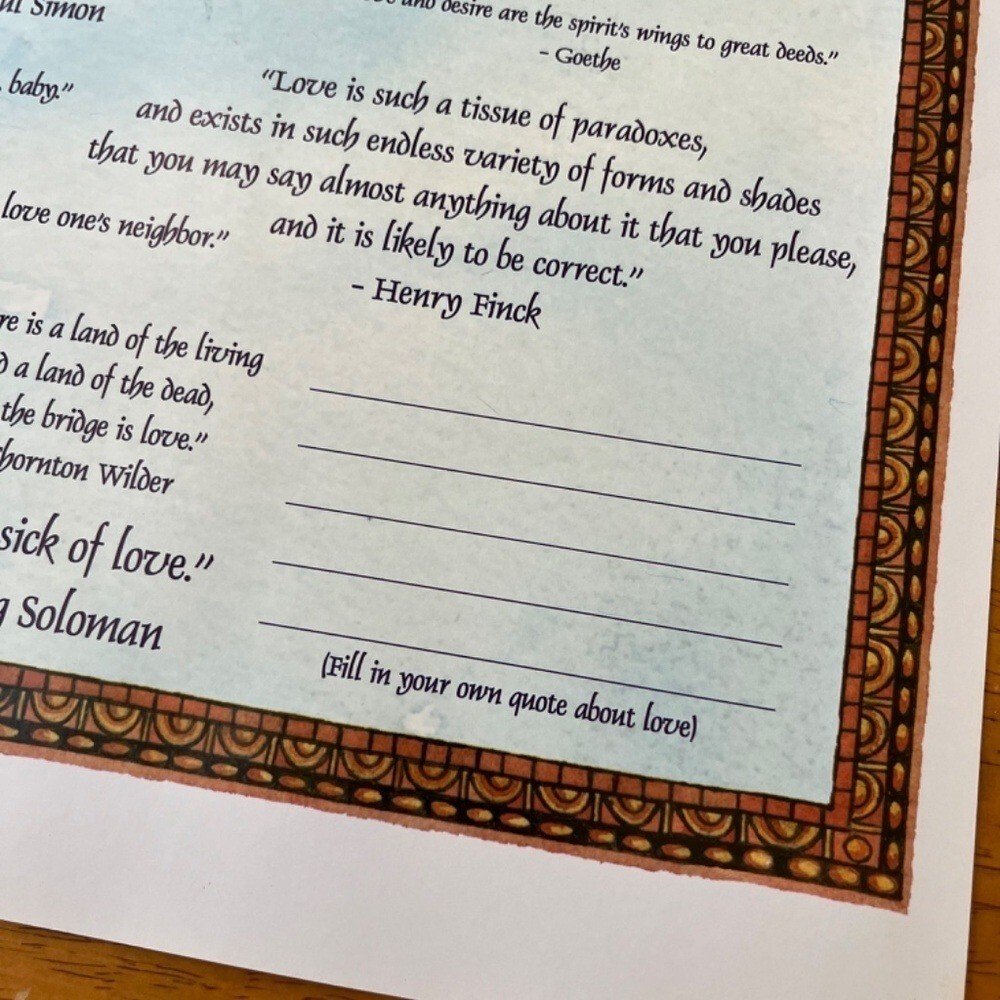 Simon
and desire are the spirit's wings to great deeds."
- Goethe
baby."
"Love is such a tissue of paradoxes,
and exists in such endless variety of forms and shades
that you may say almost anything about it that you please,
and it is likely to be correct."
- Henry Finck
love one's neighbor."
is a land of the living
a land of the dead,
the bridge is love."
Thornton Wilder
sick of love."
Soloman
(Fill in your own quote about love)